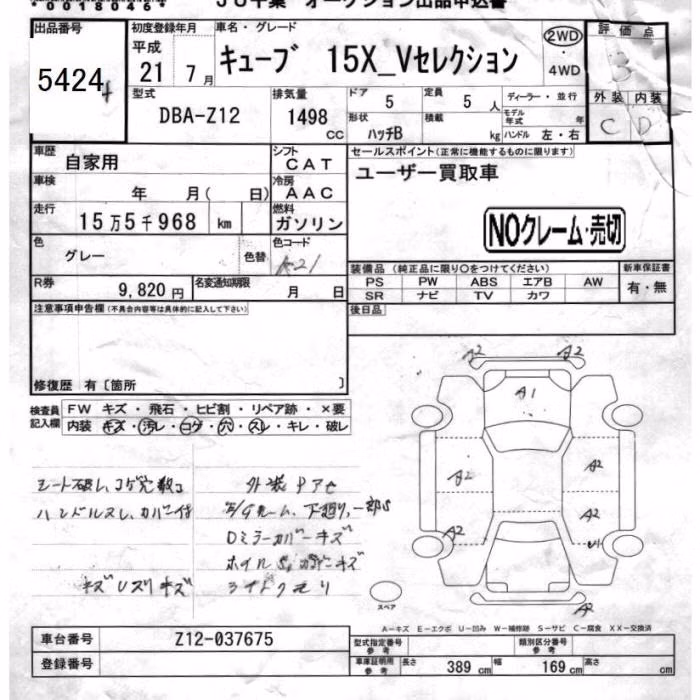 *00180464*
JU千葉 オークション出品申込書
出品番号 初度登録年月 車名・グレード 2WD・4WD 評価点
5424
平成 21年 7月 キューブ 15X_Vセレクション
型式 排気量 ドア 5 定員 5人 ディーラー・並行 外装 内装
DBA-Z12 1498cc 形状 ハッチB 積載 kg モデル年式 年 ハンドル 左・右 C D
車歴 自家用 シフト CAT セールスポイント(正常に機能するものに限ります)
車検 年 月( 日) 冷房 AAC ユーザー買取車
走行 15万5千968 km 燃料 ガソリン NOクレーム・売切
色 グレー 色替 色コード K21
装備品 (純正品に限り○をつけてください) 新車保証書
R券 9,820円 名変通知期限 月 日 PS PW ABS エアB AW 有・無
SR ナビ TV カワ
注意事項申告欄(不具合内容等は具体的に記入して下さい) 後日品
修復歴 有〔箇所 〕
検査員記入欄 FW キズ・飛石・ヒビ割・リペア跡・×要
内装 キズ・汚レ・コゲ・穴・スレ・キレ・破レ
シート破レ、コゲ穴
ハンドルスレ、カバー付
キズ
Dミラーカバーキズ
ホイルS
A2 A2
A1
A2 A2
A2 A2
U1
A2
スペア
A-キズ E-エクボ U-凹み W-補修跡 S-サビ C-腐食 XX-交換済
車台番号 Z12-037675 型式指定番号 参考 類別区分番号 参考
登録番号 車庫証明用 参考 長さ 389cm 幅 169cm 高さ cm